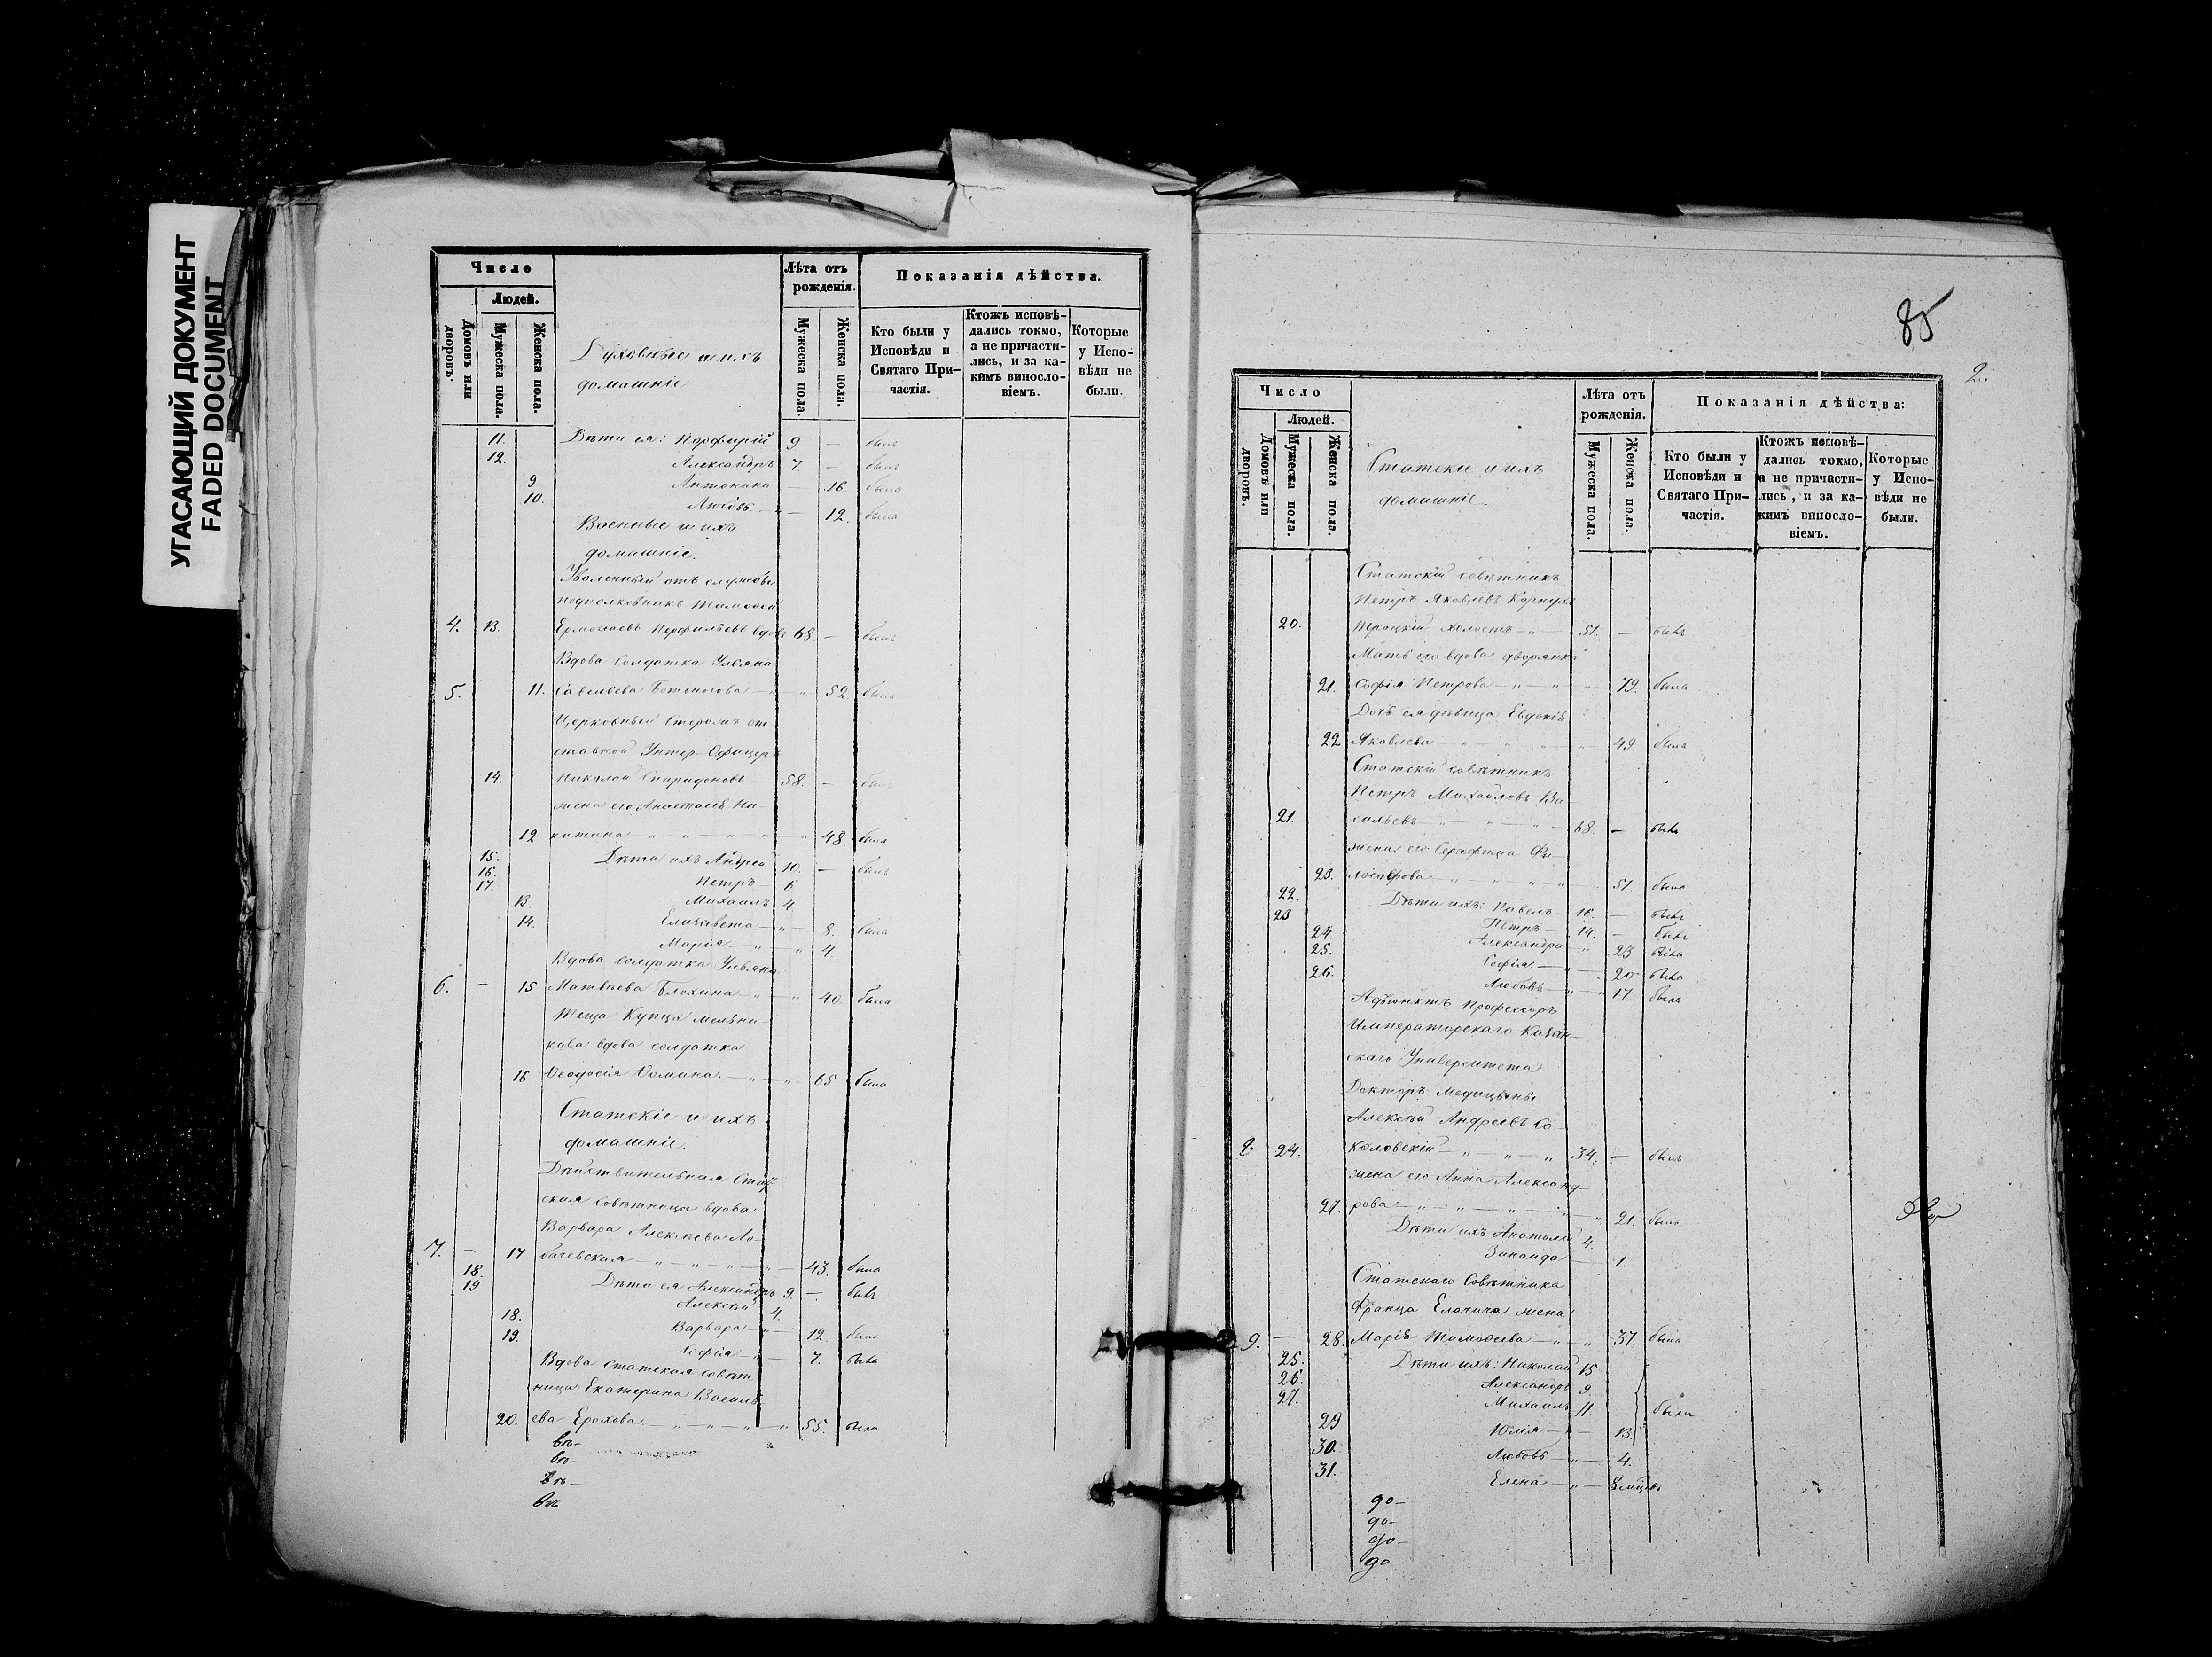 УГАСАЮЩИЙ ДОКУМЕНТ
FADED DOCUMENT
Число
Людей.
Домовъ или дворовъ.
Мужеска пола.
Женска пола.
Духовные и ихъ
домашніе
Лѣта отъ рожденія.
Мужеска пола.
Женска пола.
Показанія дѣйства.
Кто были у Исповѣди и Святаго Причастія.
Ктожъ исповѣдались токмо, а не причастились, и за какимъ винословіемъ.
Которые у Исповѣди не были.
11. Дѣти ея: Порфирій 9 — былъ
12. Александръ 7. — былъ
9 Антонина — 16 была
10. Любовь — 12. была
Военные и ихъ
домашніе.
Уволенный отъ службы
подполковникъ Тимофей
4. 13. Ермолаевъ Перфильевъ вдовъ 68. — былъ
Вдова солдатка Ульяна
5. 11. Савельева — „ — „ — 52. была
Церковный Сторожъ от
ставной Унтер-Офицеръ
14. Николай Спиридоновъ 58. — былъ
жена его Анастасія Ни-
12 китина — „ — „ — „ — „ 48 была
15. Дѣти ихъ Андрей 10. — былъ
16. Петръ — 6
17. Михаилъ 4.
13. Елисавета — „ — 8. была
14. Марія — „ — „ 4.
Вдова солдатка Ульяна
6. — 15 Матвѣева Блохина — „ — „ 40. была
Теща Купца Мельни-
кова вдова солдатка
16 Феодосія Фомина. — „ — „ 65 была
Статскіе и ихъ
домашніе.
Дѣйствительная Стат
ская совѣтница вдова
Варвара Алексѣева Ло
7. — 17 бачевская — „ — „ — „ — 43. была
18. Дѣти ея Александръ 9. — былъ
19 Алексѣй 4.
18. Варвара — „ — 12. была
19. Софія — „ — 7. была
Вдова статская совѣт
ница Екатерина Василь
20. ева Ерохова. — „ — „ — „ — „ 55. была
85
2.
Число
Людей.
Домовъ или дворовъ.
Мужеска пола.
Женска пола.
Статскіе и ихъ
домашніе.
Лѣта отъ рожденія.
Мужеска пола.
Женска пола.
Показанія дѣйства:
Кто были у Исповѣди и Святаго Причастія.
Ктожъ исповѣдались токмо, а не причастились, и за какимъ винословіемъ.
Которые у Исповѣди не были.
Статскій совѣтникъ
Петръ Яковлевъ Корнухъ
20. Троцкій холостъ — „ — 51. — былъ
Мать его вдова дворянка
21. Софія Петрова — „ — „ 79. была
Дочь ея дѣвица Евдокія
22 Яковлева — „ — „ — „ 49. была
Статскій совѣтникъ
Петръ Михайловъ Ва-
21. сильевъ — „ — „ — „ 68. — былъ
жена его Серафима Фи-
23. лософова — „ — „ — „ — „ 51. была
22. Дѣти ихъ: Павелъ — 16. — былъ
23 Петръ — 14. — былъ
24. Александра — „ 23 была
25. Софія. — „ — 20 была
26. Любовь — „ — „ 17. была
Адъюнктъ Профессоръ
Императорскаго Казан-
скаго Университета
Докторъ Медицины
Алексѣй Андреевъ Со
8 24. коловскій — „ — „ — „ 34. — былъ
жена его Анна Александ-
27. рова — „ — „ — „ — „ 21. была
Дѣти ихъ Анатолій 4.
Зинаида — 1.
Статскаго Совѣтника
Франца Елачича жена
9. — 28. Марія Тимофеева — „ — „ 37 была
25. Дѣти ихъ: Николай 15
26. Александръ 9.
27. Михаилъ 11. были
29 Юлія — „ — 13.
30. Любовь — „ — 4.
31. Елена — „ —
до-
до-
до-
до